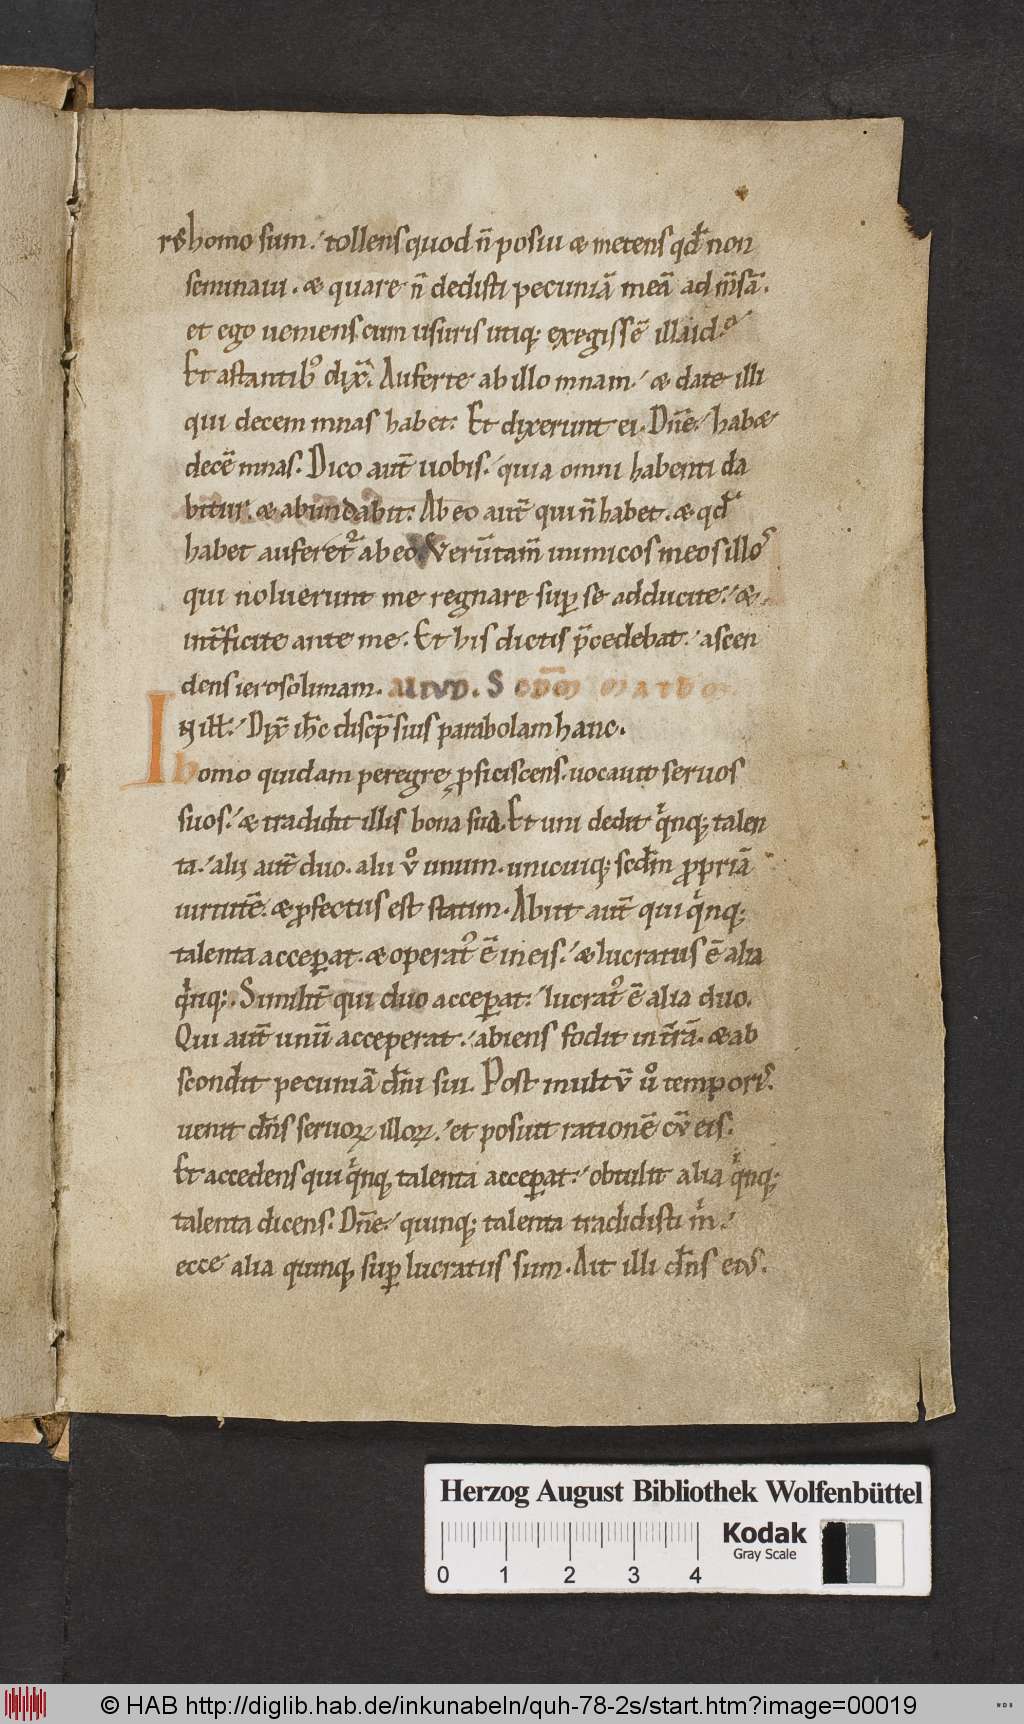 rꝰ homo sum. tollens quod n̄ posui ⁊ metens qđ non
seminaui. æ quare n̄ dedisti pecuniā meā ad m̄sā.
et ego ueniens cum usuris utiq; exegissē illud.
Et astantibꝰ dix̄. Auferte ab illo mnam. æ date illi
qui decem mnas habet. Et dixerunt ei. Dn̄e. habæ
decē mnas. Dico aut̄ uobis. quia omni habenti da
bitur. æ abundabit. Ab eo aut̄ qui n̄ habet. æ qđ
habet auferet᷑ ab eo. Verūtam̄ inimicos meos illoˢ
qui noluerunt me regnare suꝑ se adducite. æ
int̄ficite ante me. Et his dictis p̄cedebat. ascen
dens ierosolimam. ALIVD. S CDM MATHM
IN ill̄. Dix̄ ih̄c discip̄ suis parabolam hanc.
homo quidam peregre ꝓficiscens. uocauit seruos
suos. æ tradidit illis bona sua. Et uni dedit q̇nq; talen
ta. alii aut̄ duo. alii v̊ unum. unicuiq; scđm propriā
uirtutē. æ ꝓfectus est statim. Abiit aut̄ qui q̇nq;
talenta acceꝑat. æ operatꝰ ē in eis. æ lucratus ē alia
q̇nq;. Similit̄ qui duo acceꝑat. lucratꝰ ē alia duo.
Qui aut̄ unū acceperat. abiens fodit in t̄rā. æ ab
scondit pecuniā dn̄i sui. Post multū ů temporiˢ.
uenit dn̄s seruoꝝ illoꝝ. et posuit rationē cū eis.
Et accedens qui q̇nq; talenta acceꝑat. obtulit alia q̇nq;
talenta dicens. Dn̄e. quinq; talenta tradidisti m̍.
ecce alia quinq; suꝑ lucratus sum. Ait illi dn̄s eiuˢ.
Herzog August Bibliothek Wolfenbüttel
0 1 2 3 4
Kodak
Gray Scale
© HAB http://diglib.hab.de/inkunabeln/quh-78-2s/start.htm?image=00019